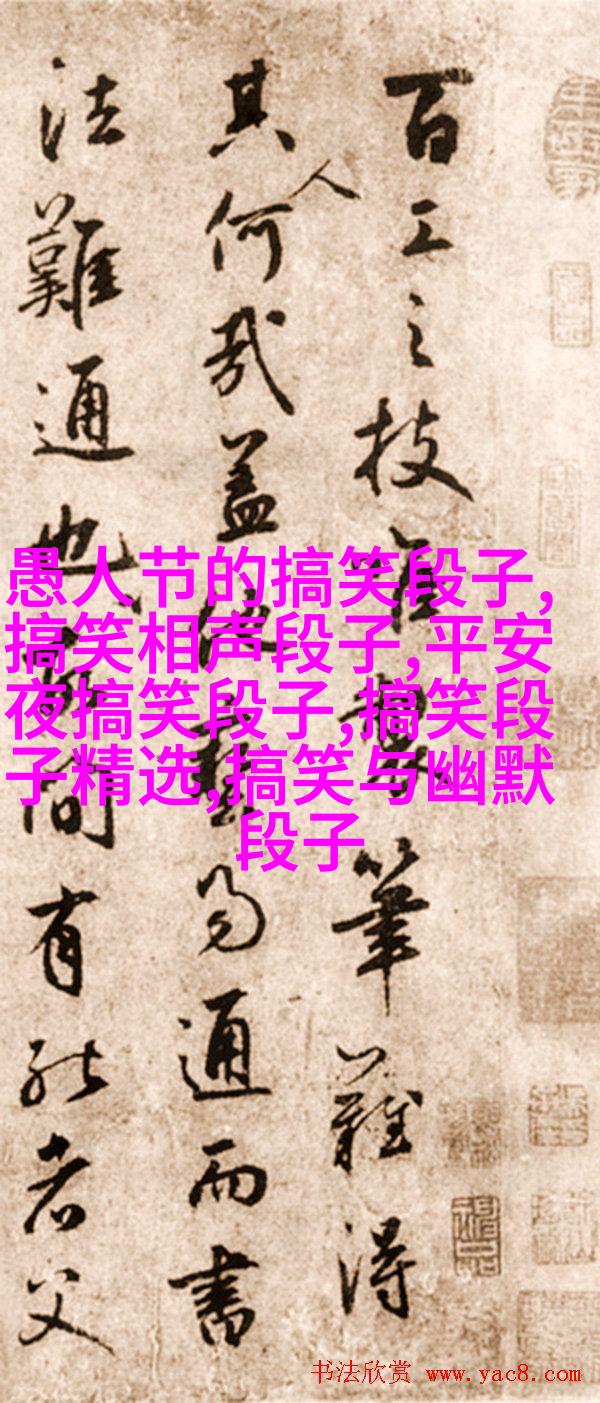 百工之技筆難得
其人何哉蓋易通而書
法難通也間有能者父
愚人节的搞笑段子,
搞笑相声段子,平安
夜搞笑段子,搞笑段
子精选,搞笑与幽默
段子
书法欣赏 www.yac8.com